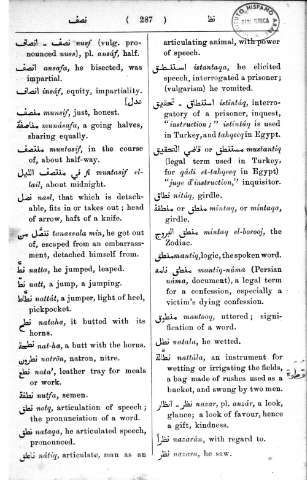 نصف ( 287 ) نطّ
نصف - انصاف nusf (vulg. pro-
nounced nuss), pl. ansáf, half.
انصف ansafa, he bisected, was
impartial.
انصاف insáf, equity, impartiality.
[عدل
منصف munsif, just, honest.
مناصفة munásafa, a going halves,
sharing equally.
منتصف muntasif, in the course
of, about half-way.
في منتصف الليل muntasif el-
lail, about midnight.
نصل nasl, that which is detach-
able, fits in or takes out; head
of arrow, haft of a knife.
تنصّل من tenessala min, he got out
of, escaped from an embarrass-
ment, detached himself from.
نطّ natta, he jumped, leaped.
نطّ natt, a jump, a jumping.
نطّاط nattát, a jumper, light of heel,
pickpocket.
نطح nataha, it butted with its
horns.
نطحة nat-ha, a butt with the horns.
نطرون natrón, natron, nitre.
نطع nata', leather tray for meals
or work.
نطفة nutfa, semen.
نطق notq, articulation of speech;
the pronunciation of a word.
نطق nataqa, he articulated speech,
pronounced.
ناطق nátiq, articulate, man as an
articulating animal, with power
of speech.
استنطق istantaqa, he elicited
speech, interrogated a prisoner;
(vulgarism) he vomited.
استنطاق - تحقيق istintáq, interro-
gatory of a prisoner, inquest,
"instruction;" istintáq is used
in Turkey, and tahqeeq in Egypt.
مستنطق or قاضي التحقيق mustantiq
(legal term used in Turkey,
for qádi et-tahqeeq in Egypt)
"juge d'instruction," inquisitor.
نطاق nitáq, girdle.
منطق or منطقة mintaq, or mintaqa,
girdle.
منطق البروج mintaq el-borooj, the
Zodiac.
منطق mantiq, logic, the spoken word.
منطق نامه mantiq-náma (Persian
náma, document), a legal term
for a confession, especially a
victim's dying confession.
منطوق mantooq, uttered; signi-
fication of a word.
نطل natala, he wetted.
نطّالة nattála, an instrument for
wetting or irrigating the fields,
a bag made of rushes used as a
bucket, and swung by two men.
نظر - انظار nazar, pl. anzár, a look,
glance; a look of favour, hence
a gift, kindness.
نظراً nazarán, with regard to.
نظر nazara, he saw.